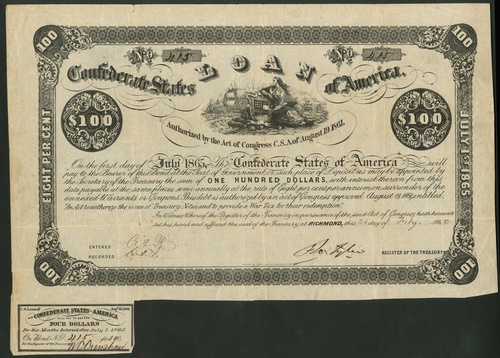 100
No 415
No 415
100
LOAN
Confederate States
of America.
Authorized by the Act of Congress C.S.A. of August 19 1861.
$100
$100
EIGHT PER CENT
JULY 1st 1865
On the first day of July 1865, The Confederate States of America will
pay to the Bearer of this Bond at the Seat of Government or such place of Deposit as may be appointed by
the Secretary of the Treasury the sum of ONE HUNDRED DOLLARS, with interest thereon from this
date payable at the same place semi-annually at the rate of Eight per cent per annum on surrender of the
annexed Warrants or Coupons. This debt is authorized by an act of Congress approval August 19 1861 entitled
An Act to authorize the issue of Treasury Notes and to provide a War Tax for their redemption.
In Witness Whereof the Register of the Treasury in pursuance of the said Act of Congress hath hereunto
set his hand and affixed the seal of the Treasury at RICHMOND, this day of
ENTERED
RECORDED
REGISTER OF THE TREASURY
100
100
CONFEDERATE STATES OF AMERICA
FOUR DOLLARS
For Six Months Interest due July 1, 1865
On Bond No 415